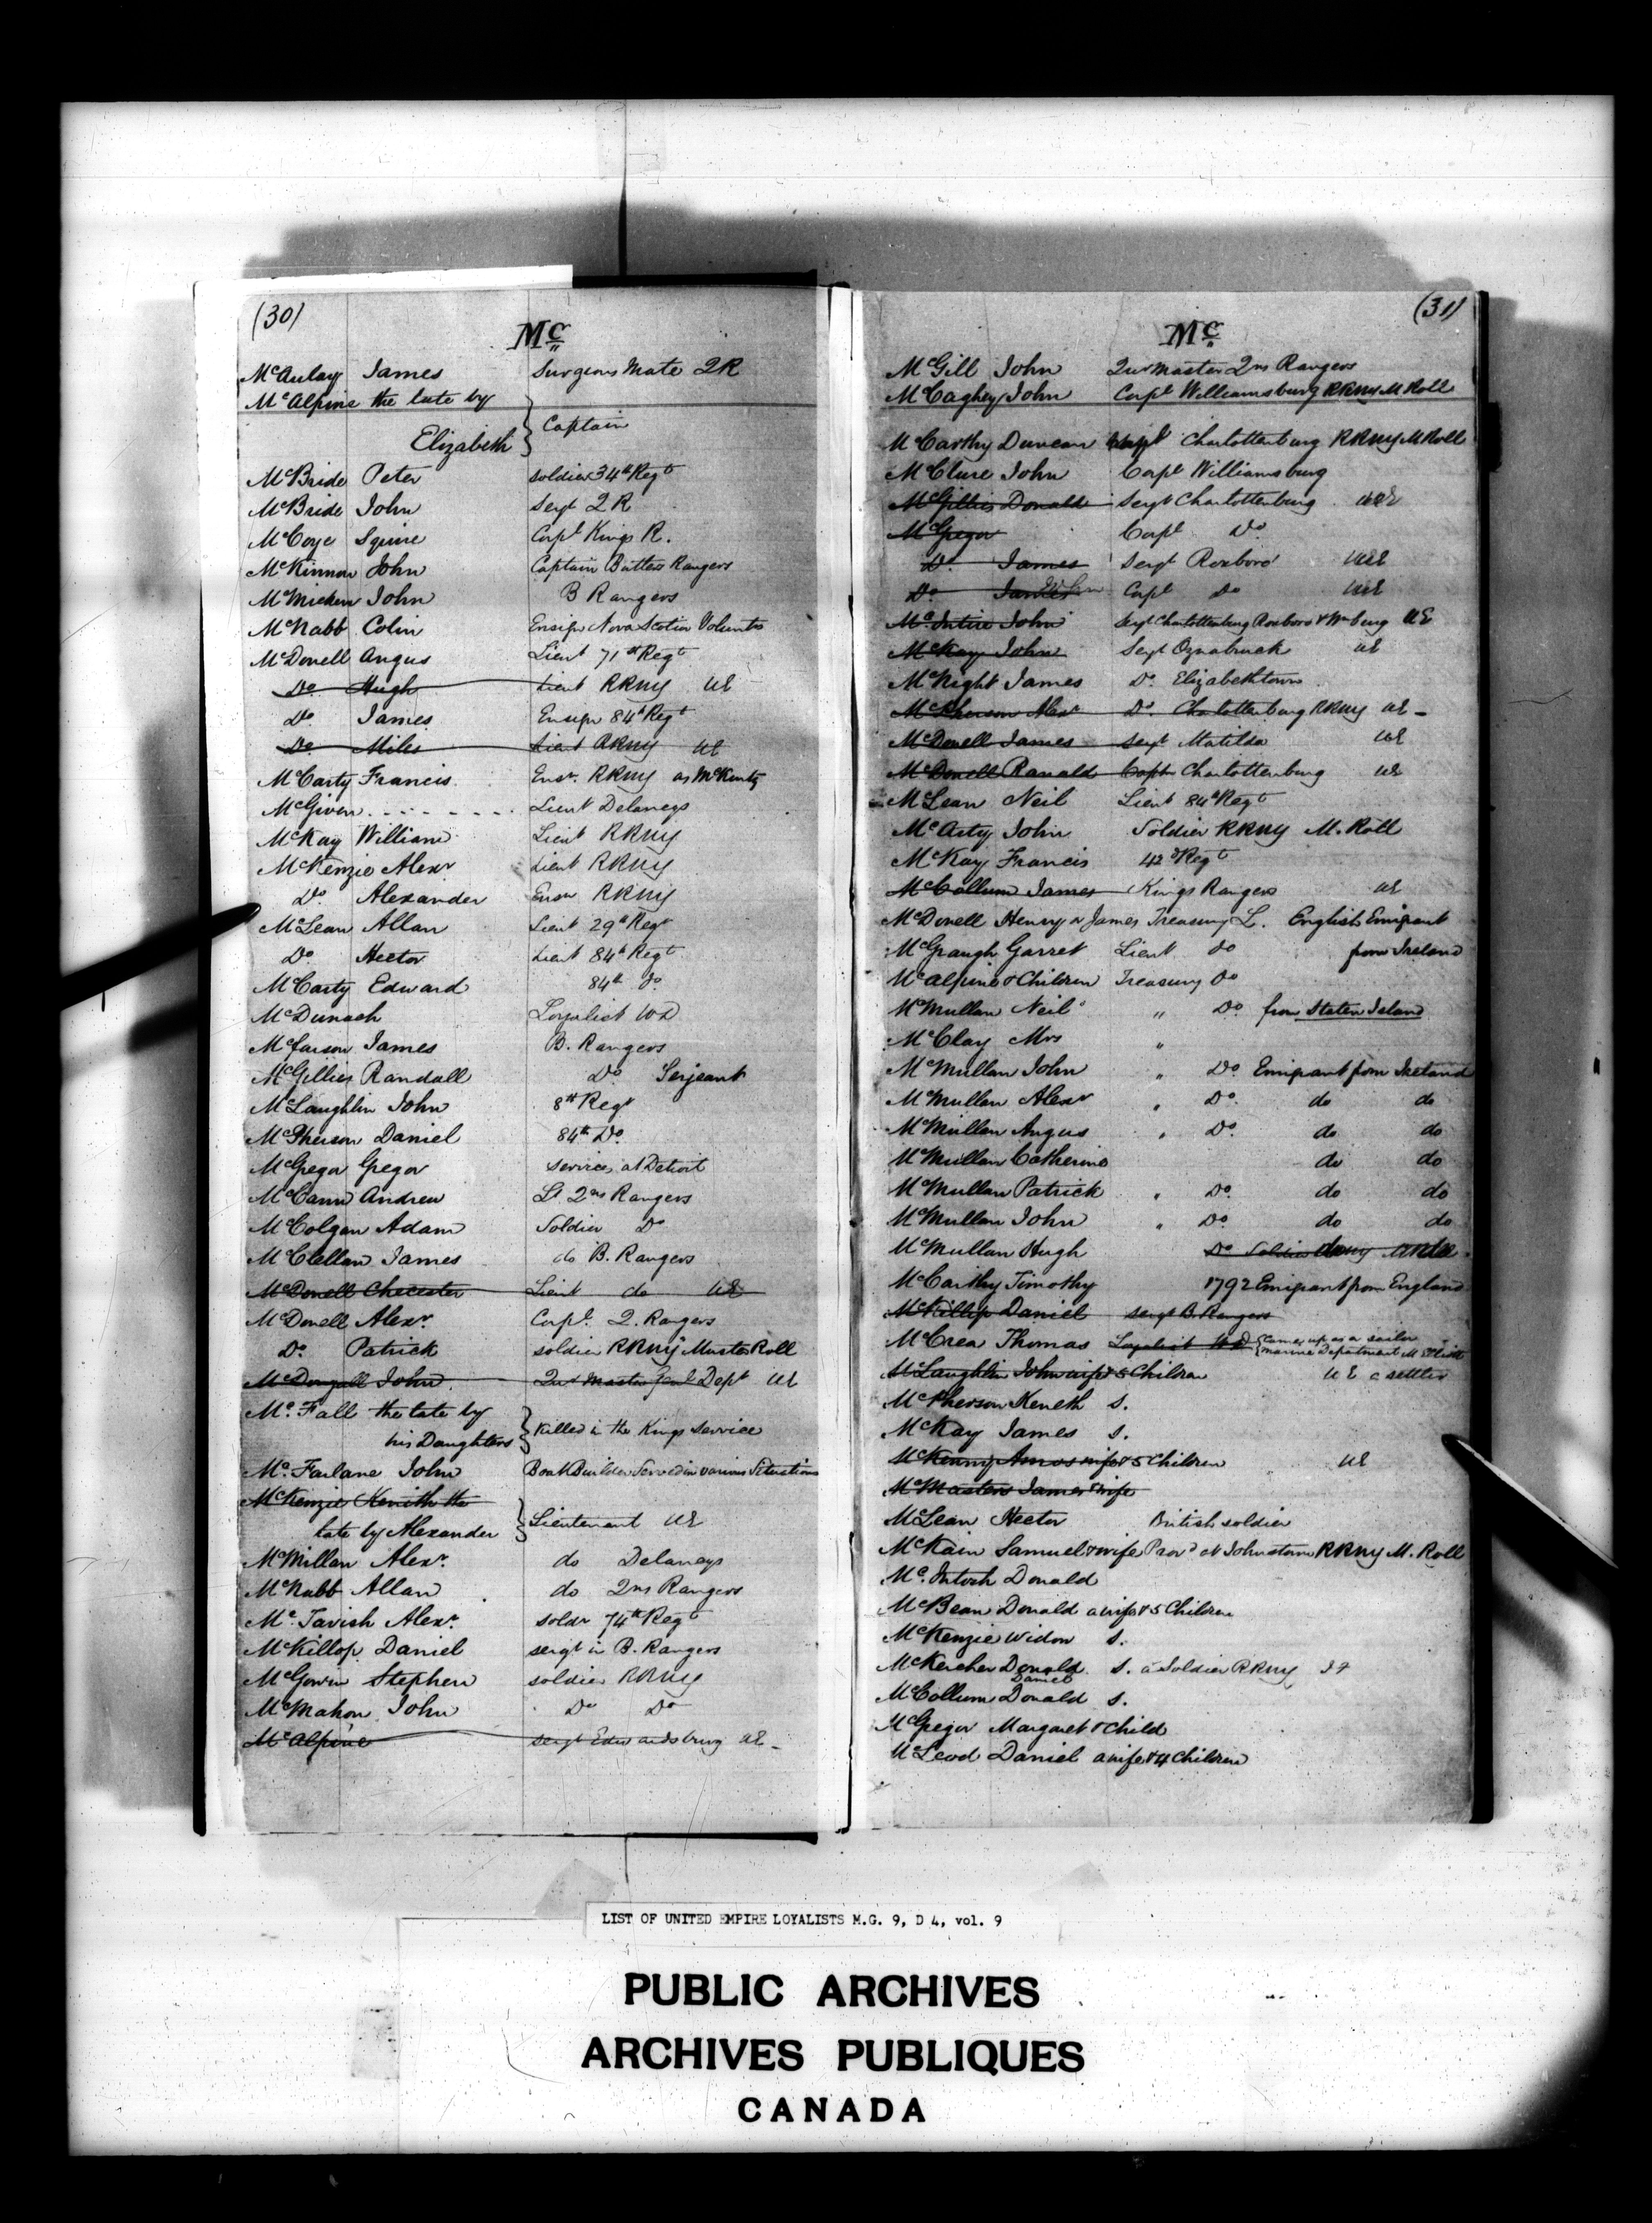 (30)
Mc
McAulay James Surgeons Mate 2R
McAlpine the late by
Elizabeth } Captain
McBride Peter soldier 34th Regt
McBride John Sergt 2 R
McCoye Squire Corpl Kings R.
McKinnon John Captain Butlers Rangers
McMicken John B Rangers
McNabb Colin Ensign Nova Scotia Volunts
McDonell Angus Lieut 71st Regt
Do Hugh Lieut RRNY UE
Do James Ensign 84th Regt
Do Miles Lieut RRNY UE
McCarty Francis Ensn. RRNY as McKenty
McGiven Lieut Delaneys
McKay William Lieut RRNY
McKenzie Alexr Lieut RRNY
Do. Alexander Ensn RRNY
McLean Allan Lieut 29th Regt
Do Hector Lieut 84th Regt
McCarty Edward 84th Do
McDunach Loyalist WD
McFarson James B. Rangers
McGillies Randall Do Serjeant
McLaughlin John 8th Regt
McPherson Daniel 84th Do.
McGregor Gregor services at Detroit
McCann Andrew Lt 2ns Rangers
McColgan Adam Soldier Do
McClellan James do B. Rangers
McDonell Checester Lieut do UE
McDonell Alexr. Corpl. 2. Rangers
Do Patrick soldier RRNY Muster Roll
McDougall John Qur Master Genl Dept UE
Mc.Fall the late by
his Daughters } Killed in the Kings Service
Mc.Farlane John Boat Builder Served in various Situations
McKenzie Kenith the
late by Alexander } Lieutenant UE
McMillan Alexr. do Delaneys
McNabb Allan do 2ns Rangers
Mc.Tavish Alexr. soldr 74th Regt
McKillop Daniel sergt in B. Rangers
McGowin Stephen soldier RRNY
McMahon John Do Do
McAlpine sergt Edwardsburg UE
(31)
Mc
McGill John Qur Master 2ns Rangers
McCaghey John Corpl Williamsburg RRNY M Roll
McCarthy Duncan Charlottenburg RRNY M Roll
McClure John Corpl Williamsburg
McGillies Donald Sergt Charlottenburg UE
McGregor Corpl Do
Do. James Sergt Roxboro UE
Do John Corpl Do UE
Mc.Intire John Sergt Charlottenburg Roxboro & Wmburg UE
McKay John Sergt Oznabruck UE
McNight James Do. Elizabethtown
McPherson Alexr Do. Charlottenburg RRNY UE
McDonell James Sergt Matilda UE
McDonell Ranald Captn Charlottenburg UE
McLean Neil Lieut 84th Regt
McArty John Soldier RRNY M. Roll
McKay Francis 42d Regt
McCollum James Kings Rangers UE
McDonell Henry or James Treasury L. English Emigrant
McGraugh Garret Lieut do from Ireland
McAlpine & Children Treasury Do
McMullan Neil " Do from Staten Island
McClay Mrs "
McMullan John " Do. Emigrant from Ireland
McMullan Alexr " Do. do do
McMullan Angus " Do. do do
McMullan Catherine do do
McMullan Patrick " Do. do do
McMullan John " Do. do do
McMullan Hugh Do Soldier
McCarthy Timothy 1792 Emigrant from England
McKillop Daniel sergt B. Rangers
McCrea Thomas Loyalist WD { came up as a sailor
marine Department M Elliott
McLaughlin John wife & 5 Children UE a settler
McPherson Keneth S.
McKay James S.
McKenny Amos wife & 5 Children UE
McMasters James & wife
McLean Hector British soldier
McKain Samuel & wife Provd N Johnstown RRNY M. Roll
Mc.Intosh Donald
McBean Donald a wife & 5 Children
McKenzie Widow S.
McKercher Donald S. a Soldier RRNY
Daniel
McCollum Donald S.
McGregor Margaret & Child
McLeod Daniel a wife & 4 Children
LIST OF UNITED EMPIRE LOYALISTS M.G. 9, D 4, vol. 9
PUBLIC ARCHIVES
ARCHIVES PUBLIQUES
CANADA